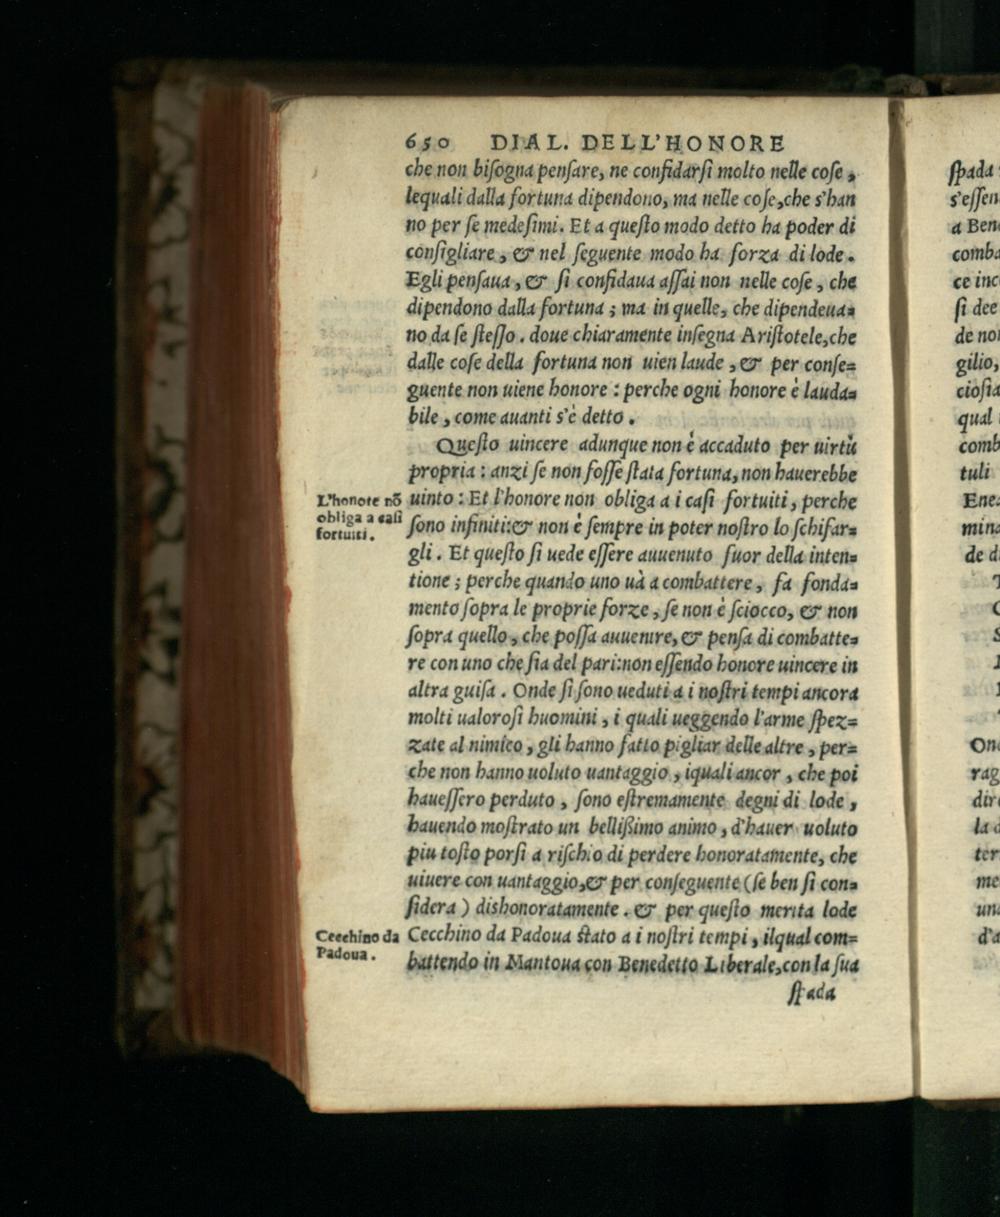 650 DIAL. DELL'HONORE
che non biſogna penſare, ne confidarſi molto nelle coſe,
lequali dalla fortuna dipendono, ma nelle coſe, che s'han
no per ſe medeſimi. Et a queſto modo detto ha poder di
conſigliare, & nel ſeguente modo ha forza di lode.
Egli penſaua, & ſi confidaua aſſai non nelle coſe, che
dipendono dalla fortuna; ma in quelle, che dipendeua=
no da ſe ſteſſo. doue chiaramente inſegna Ariſtotele, che
dalle coſe della fortuna non uien laude, & per conſe=
guente non uiene honore: perche ogni honore è lauda=
bile, come auanti s'è detto.
Queſto uincere adunque non è accaduto per uirtù
propria: anzi ſe non foſſe ſtata fortuna, non hauerebbe
L'honore nõ
obliga a caſi
fortuiti.
uinto: Et l'honore non obliga a i caſi fortuiti, perche
ſono infiniti:& non è ſempre in poter noſtro lo ſchifar=
gli. Et queſto ſi uede eſſere auuenuto fuor della inten=
tione; perche quando uno uà a combattere, fa fonda=
mento ſopra le proprie forze, ſe non è ſciocco, & non
ſopra quello, che poſſa auuenire, & penſa di combatte=
re con uno che ſia del pari:non eſſendo honore uincere in
altra guiſa. Onde ſi ſono ueduti a i noſtri tempi ancora
molti ualoroſi huomini, i quali ueggendo l'arme ſpez=
zate al nimico, gli hanno fatto pigliar delle altre, per=
che non hanno uoluto uantaggio, iquali ancor, che poi
haueſſero perduto, ſono eſtremamente degni di lode,
hauendo moſtrato un belliſſimo animo, d'hauer uoluto
piu toſto porſi a riſchio di perdere honoratamente, che
uiuere con uantaggio,& per conſeguente (ſe ben ſi con=
ſidera) dishonoratamente. & per queſto merita lode
Cecchino da
Padoua.
Cecchino da Padoua ſtato a i noſtri tempi, ilqual com=
battendo in Mantoua con Benedetto Liberale, con la ſua
ſpada
ſpada
s'eſſen
a Ben
comba
ce inc
ſi dee
de no
gilio,
cioſia
qual
comb
tuli
Enea
mina
de d
On
rag
dir
la d
ter
me
un
d'a